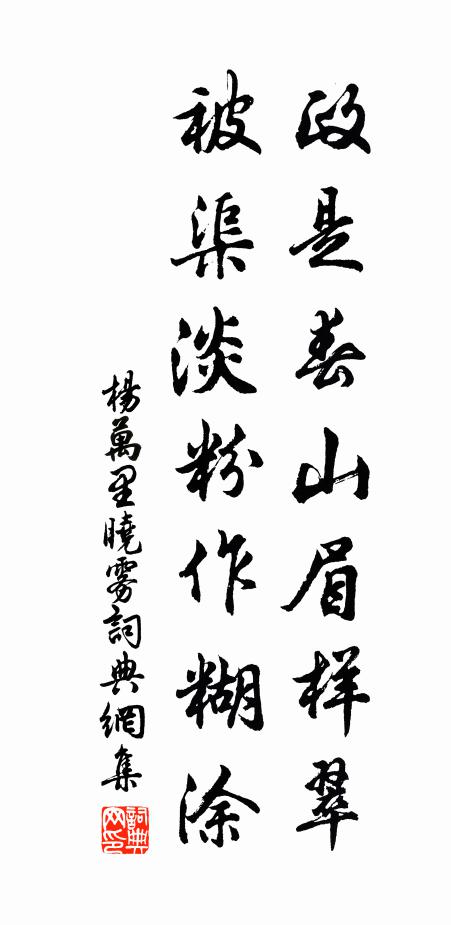 政是春山眉样翠
被渠淡粉作糊涂
楊萬里曉雾詞典網集
詞典网印